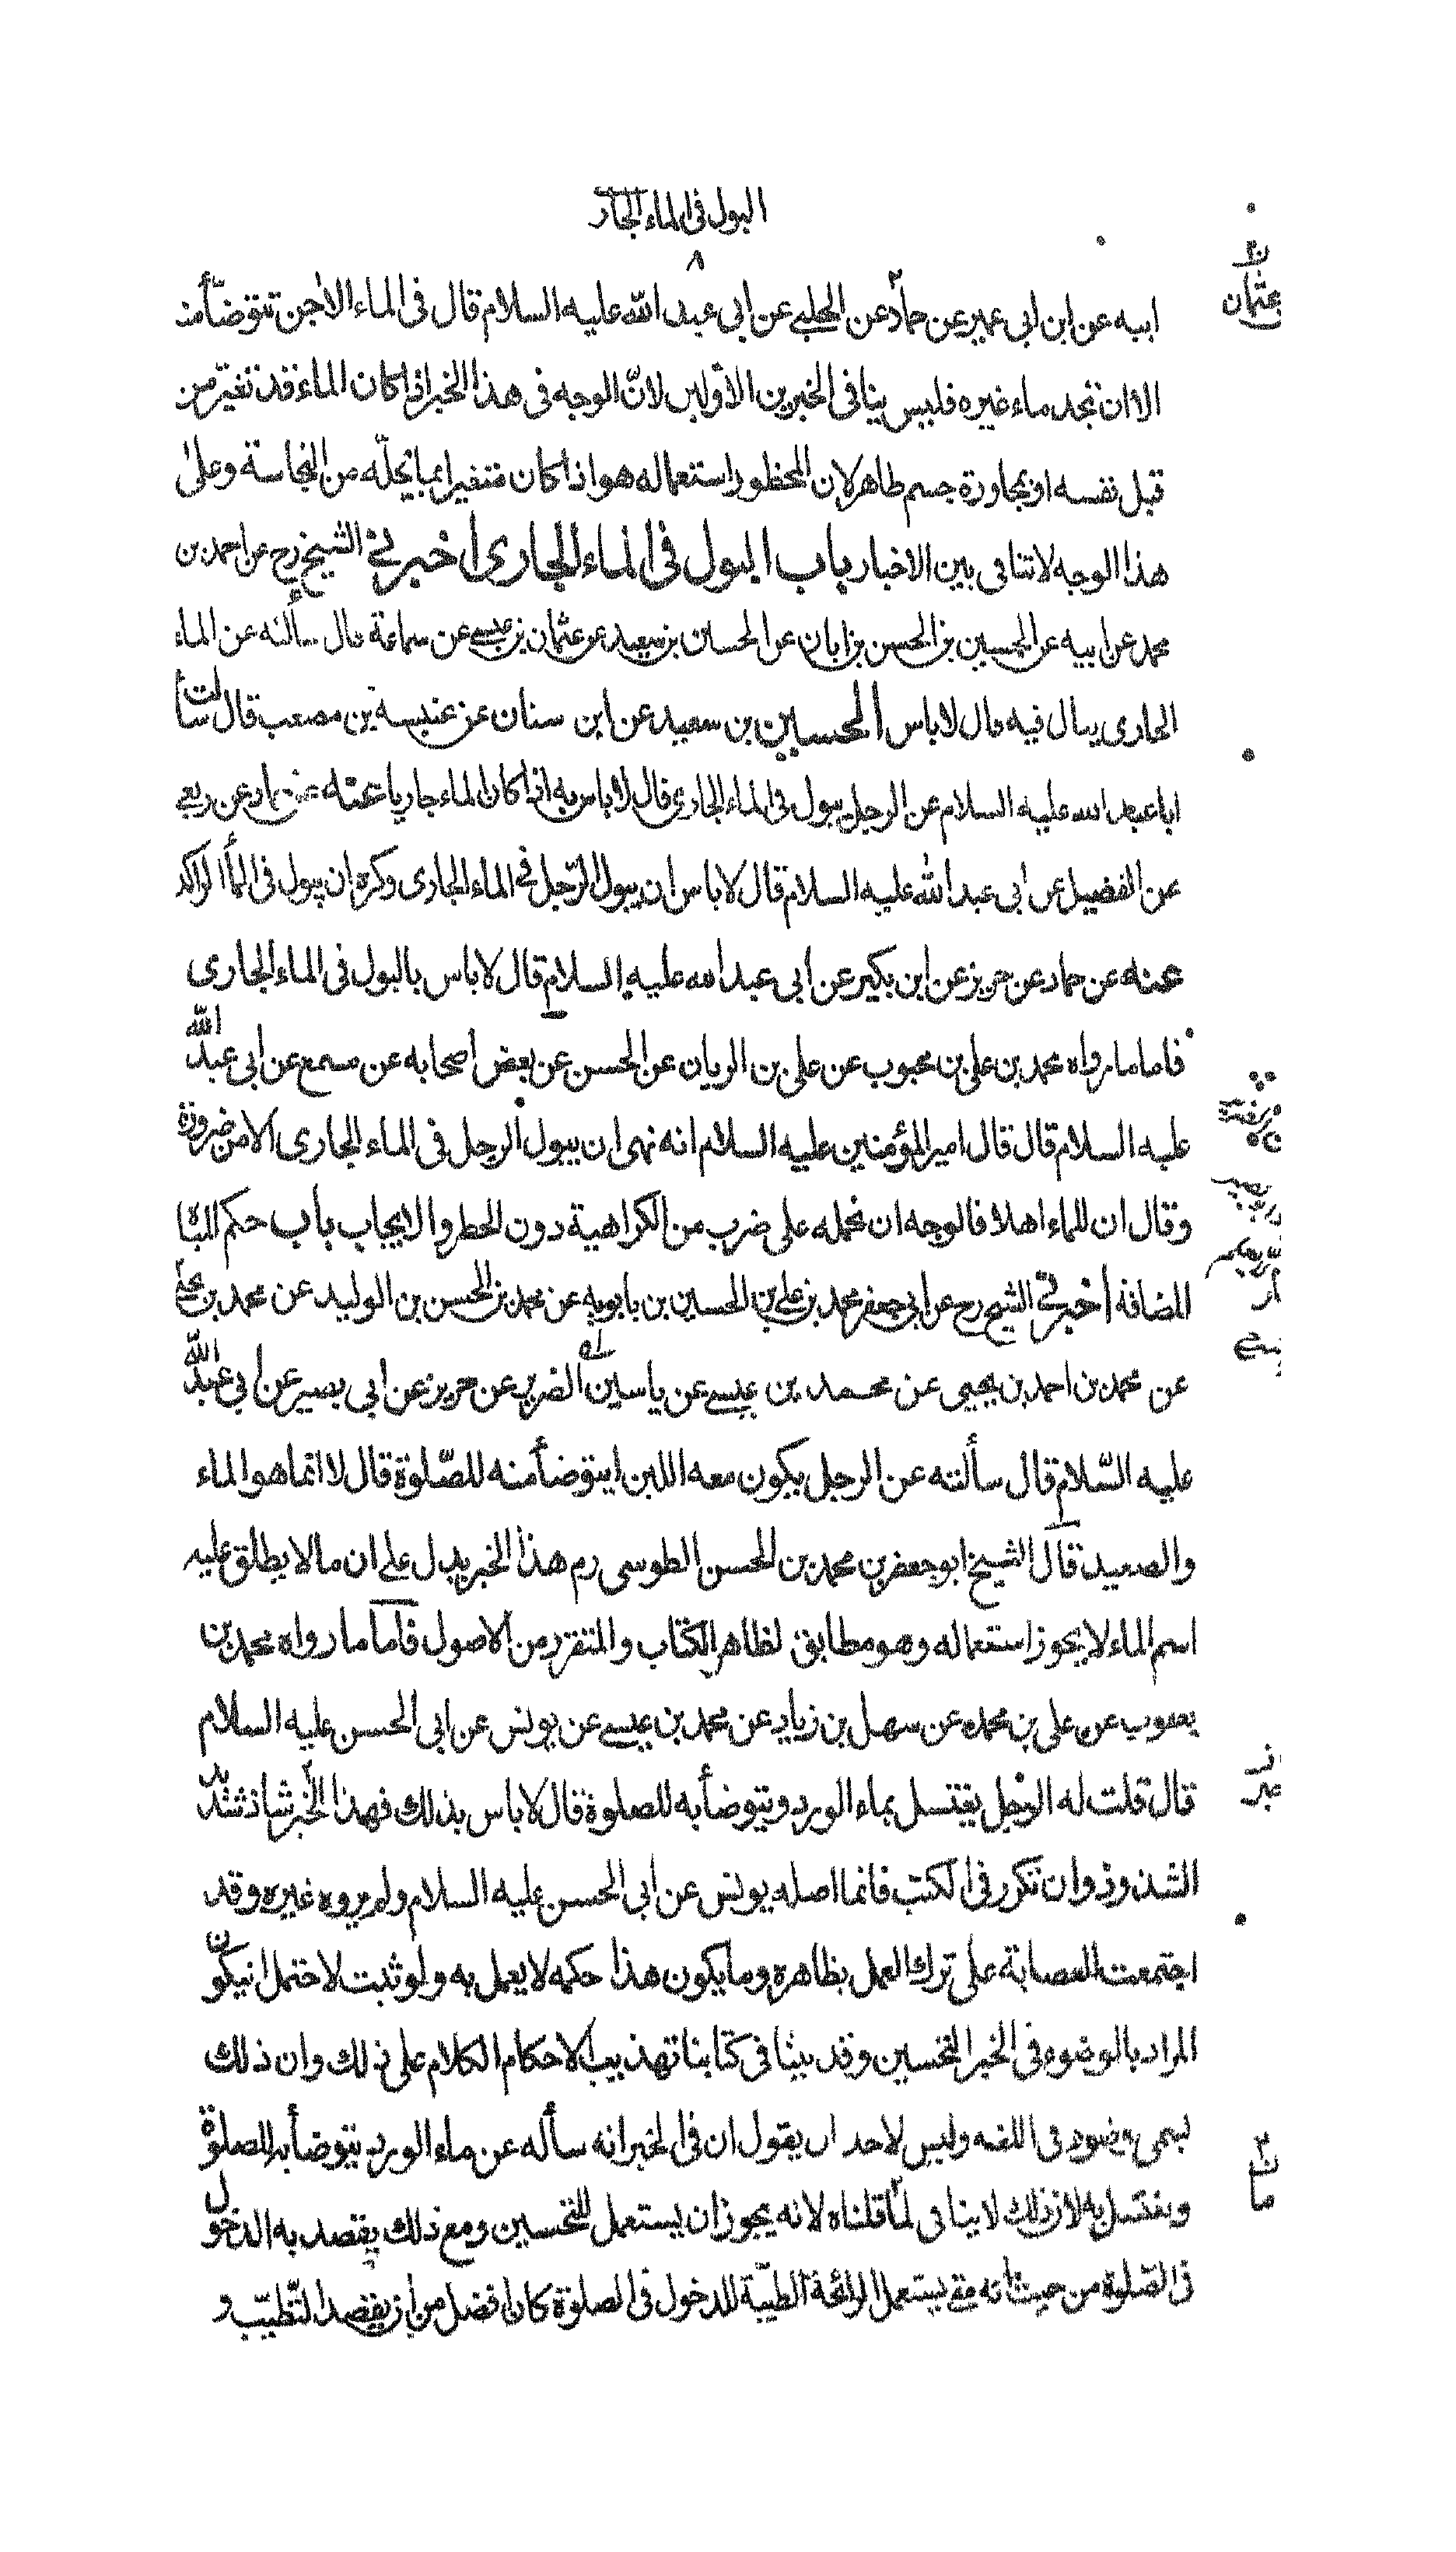 البول فى الماء الجار
٨
ابيه عن ابن ابى عمير عن حماد عن الحلبى عن ابى عبد الله عليه السلام قال فى الماء الاجن تتوضأ منه
الا ان تجد ماء غيره فليس ينافى الخبرين الاولين لانّ الوجه فى هذا الخبر اذا كان الماء قد تغير من
قبل نفسه او بمجاورة جسم طاهر لان المحظور استعماله هو اذا كان متغيرا بما يحلّه من النجاسة وعلى
هذا الوجه لا تنافى بين الاخبار باب البول فى الماء الجارى أخبرنى الشيخ رح عن احمد بن
محمد عن ابيه عن الحسين بن الحسن بن ابان عن الحسين بن سعيد عن عثمان بن عيسى عن سماعة قال سألته عن الماء
الجارى يبال فيه قال لاباس الحسين بن سعيد عن ابن سنان عن عنبسه بن مصعب قال سألت
ابا عبد الله عليه السلام عن الرجل يبول فى الماء الجارى قال لا باس به اذا كان الماء جاريا عنه عن حماد عن ربعى
عن الفضيل عن ابى عبد الله عليه السلام قال لا باس ان يبول الرّجل فى الماء الجارى وكره ان يبول فى الماء الراكد
عنه عن حماد عن حريز عن ابن بكير عن ابى عبد الله عليه السلام قال لا باس بالبول فى الماء الجارى
فاما ما رواه محمد بن على بن محبوب عن على بن الريان عن الحسن عن بعض أصحابه عن مسمع عن ابى عبد الله
عليه السلام قال قال امير المؤمنين عليه السلام انه نهى ان يبول الرجل فى الماء الجارى الا من ضرورة
وقال ان للماء اهلا فالوجه ان نحمله على ضرب من الكراهية دون الحظر والايجاب باب حكم المياه
المضافة أخبرنى الشيخ رح عن ابى جعفر محمد بن على بن الحسين بن بابويه عن محمد بن الحسن بن الوليد عن محمد بن يحيى
عن محمد بن احمد بن يحيى عن محمد بن عيسى عن ياسين الضرير عن حريز عن ابى بصير عن ابى عبد الله
عليه السّلام قال سألته عن الرجل يكون معه اللبن ايتوضأ منه للصّلوة قال لا انما هو الماء
والصعيد قال الشيخ ابو جعفر بن محمد بن الحسن الطوسى رم هذا الخبر يدل على ان ما لا يطلق عليه
اسم الماء لا يجوز استعماله وهو مطابق لظاهر الكتاب والمتقرر من الاصول فأما ما رواه محمد بن
يعقوب عن على بن محمد عن سهل بن زياد عن محمد بن عيسى عن يونس عن ابى الحسن عليه السلام
قال قلت له الرجل يغتسل بماء الورد ويتوضأ به للصلوة قال لا باس بذلك فهذا الخبر شاذ شديد
الشذوذ وان تكرر فى الكتب فانما اصله يونس عن ابى الحسن عليه السلام ولم يروه غيره وقد
اجتمعت العصابة على ترك العمل بظاهره وما يكون هذا حكمه لا يعمل به ولو ثبت لاحتمل ان يكون
المراد بالوضوء فى الخبر التحسين وقد بينا فى كتابنا تهذيب الاحكام الكلام على ذلك وان ذلك
يسمى وضوء فى اللغه وليس لاحد ان يقول ان فى الخبر انه سأله عن ماء الورد يتوضأ به للصلوة
ويغتسل به لان ذلك لا ينافى لما قلناه لانه يجوز ان يستعمل للتحسين ومع ذلك يقصد به الدخول
فى الصّلوة من حيث انه متى يستعمل الرائحة الطيّبة للدخول فى الصلوة كان افضل من ان يقصد التطيّب و
عثمان